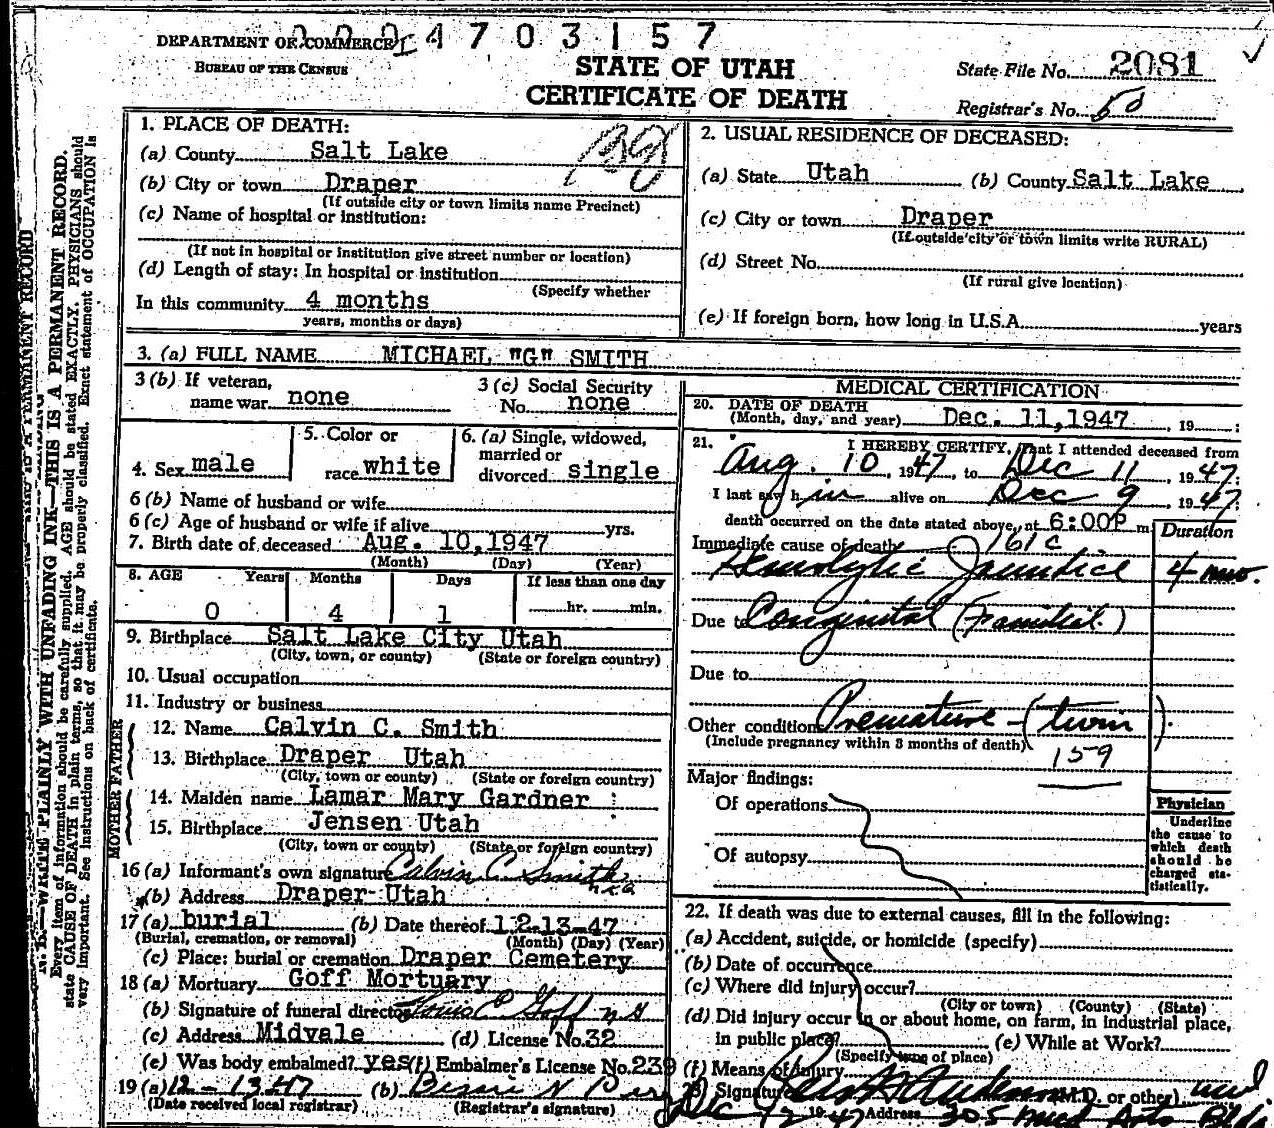 0004703157
DEPARTMENT OF COMMERCE
BUREAU OF THE CENSUS
STATE OF UTAH
CERTIFICATE OF DEATH
State File No. 2081
Registrar's No. 50
N. B.—WRITE PLAINLY WITH UNFADING INK—THIS IS A PERMANENT RECORD.
Every item of information should be carefully supplied. AGE should be stated EXACTLY. PHYSICIANS should
state CAUSE OF DEATH in plain terms, so that it may be properly classified. Exact statement of OCCUPATION is
very important. See instructions on back of certificate.
1. PLACE OF DEATH:
(a) County Salt Lake
(b) City or town Draper
(If outside city or town limits name Precinct)
(c) Name of hospital or institution:
(If not in hospital or institution give street number or location)
(d) Length of stay: In hospital or institution
(Specify whether
In this community 4 months
years, months or days)
2. USUAL RESIDENCE OF DECEASED:
(a) State Utah (b) County Salt Lake
(c) City or town Draper
(If outside city or town limits write RURAL)
(d) Street No.
(If rural give location)
(e) If foreign born, how long in U.S.A. years
3. (a) FULL NAME MICHAEL "G" SMITH
3 (b) If veteran, name war none
3 (c) Social Security No. none
4. Sex male
5. Color or race white
6. (a) Single, widowed, married or divorced single
6 (b) Name of husband or wife
6 (c) Age of husband or wife if alive yrs.
7. Birth date of deceased Aug. 10, 1947
(Month) (Day) (Year)
8. AGE Years Months Days If less than one day
0 4 1 hr. min.
9. Birthplace Salt Lake City Utah
(City, town, or county) (State or foreign country)
10. Usual occupation
11. Industry or business
FATHER
12. Name Calvin C. Smith
13. Birthplace Draper Utah
(City, town or county) (State or foreign country)
MOTHER
14. Maiden name Lamar Mary Gardner
15. Birthplace Jensen Utah
(City, town or county) (State or foreign country)
16 (a) Informant's own signature Calvin C. Smith
(b) Address Draper Utah
17 (a) burial (b) Date thereof 12-13-47
(Burial, cremation, or removal) (Month) (Day) (Year)
(c) Place: burial or cremation Draper Cemetery
18 (a) Mortuary Goff Mortuary
(b) Signature of funeral director Goff
(c) Address Midvale (d) License No. 32
(e) Was body embalmed? yes (f) Embalmer's License No. 239
19 (a) 12-13-47 (b)
(Date received local registrar) (Registrar's signature)
MEDICAL CERTIFICATION
20. DATE OF DEATH
(Month, day, and year) Dec. 11, 1947, 19 ;
21. I HEREBY CERTIFY, That I attended deceased from
Aug. 10, 1947, to Dec 11, 1947;
I last saw h im alive on Dec 9, 1947;
death occurred on the date stated above, at 6:00P m
Duration
Immediate cause of death 161c
Hemolytic Jaundice 4 mo.
Due to Congenital (Familial.)
Due to
Other conditions Premature - (twin)
(Include pregnancy within 3 months of death)
159
Major findings:
Of operations
Of autopsy
Physician
Underline the cause to which death should be charged statistically.
22. If death was due to external causes, fill in the following:
(a) Accident, suicide, or homicide (specify)
(b) Date of occurrence
(c) Where did injury occur?
(City or town) (County) (State)
(d) Did injury occur in or about home, on farm, in industrial place,
in public place? (e) While at Work?
(Specify type of place)
(f) Means of injury
23. Signature (M.D. or other)
Dec 12 1947 Address 305 Med Arts Bldg